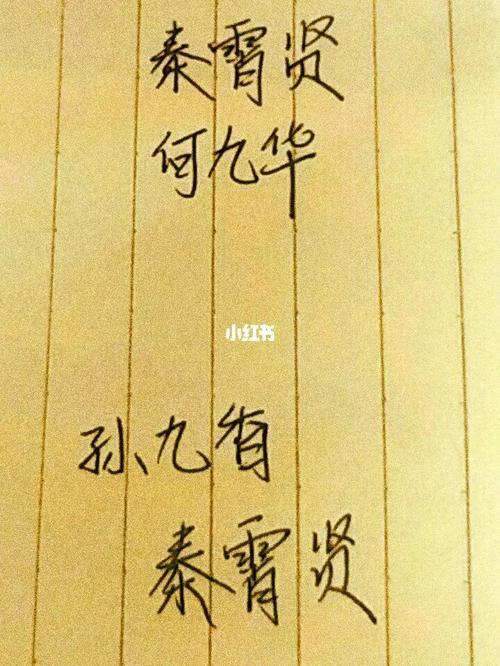 秦霄贤
何九华
小红书
孙九香
秦霄贤